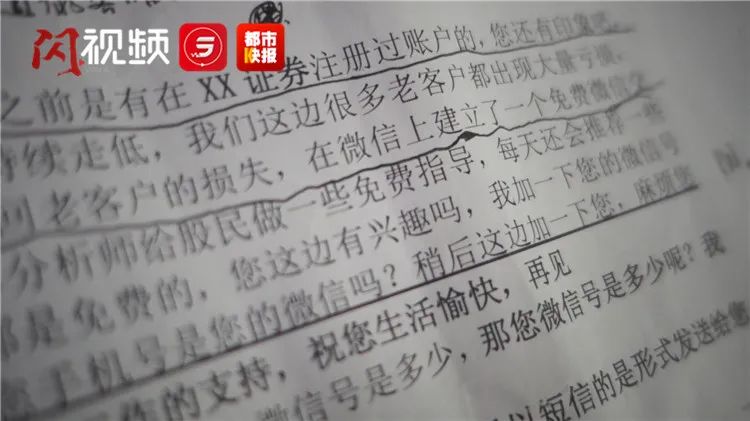 闪视频
都市
快报
之前是有在XX证券注册过账户的,您还有印象吧
持续走低,我们这边很多老客户都出现大量亏损,
老客户的损失,在微信上建立了一个免费微信
分析师给股民做一些免费指导,每天还会推荐一些
是免费的,您这边有兴趣吗,我加一下您的微信号
手机号是您的微信吗?稍后这边加一下您,麻烦您
的支持,祝您生活愉快,再见
微信号是多少,那您微信号是多少呢?我
以短信的是形式发送给您